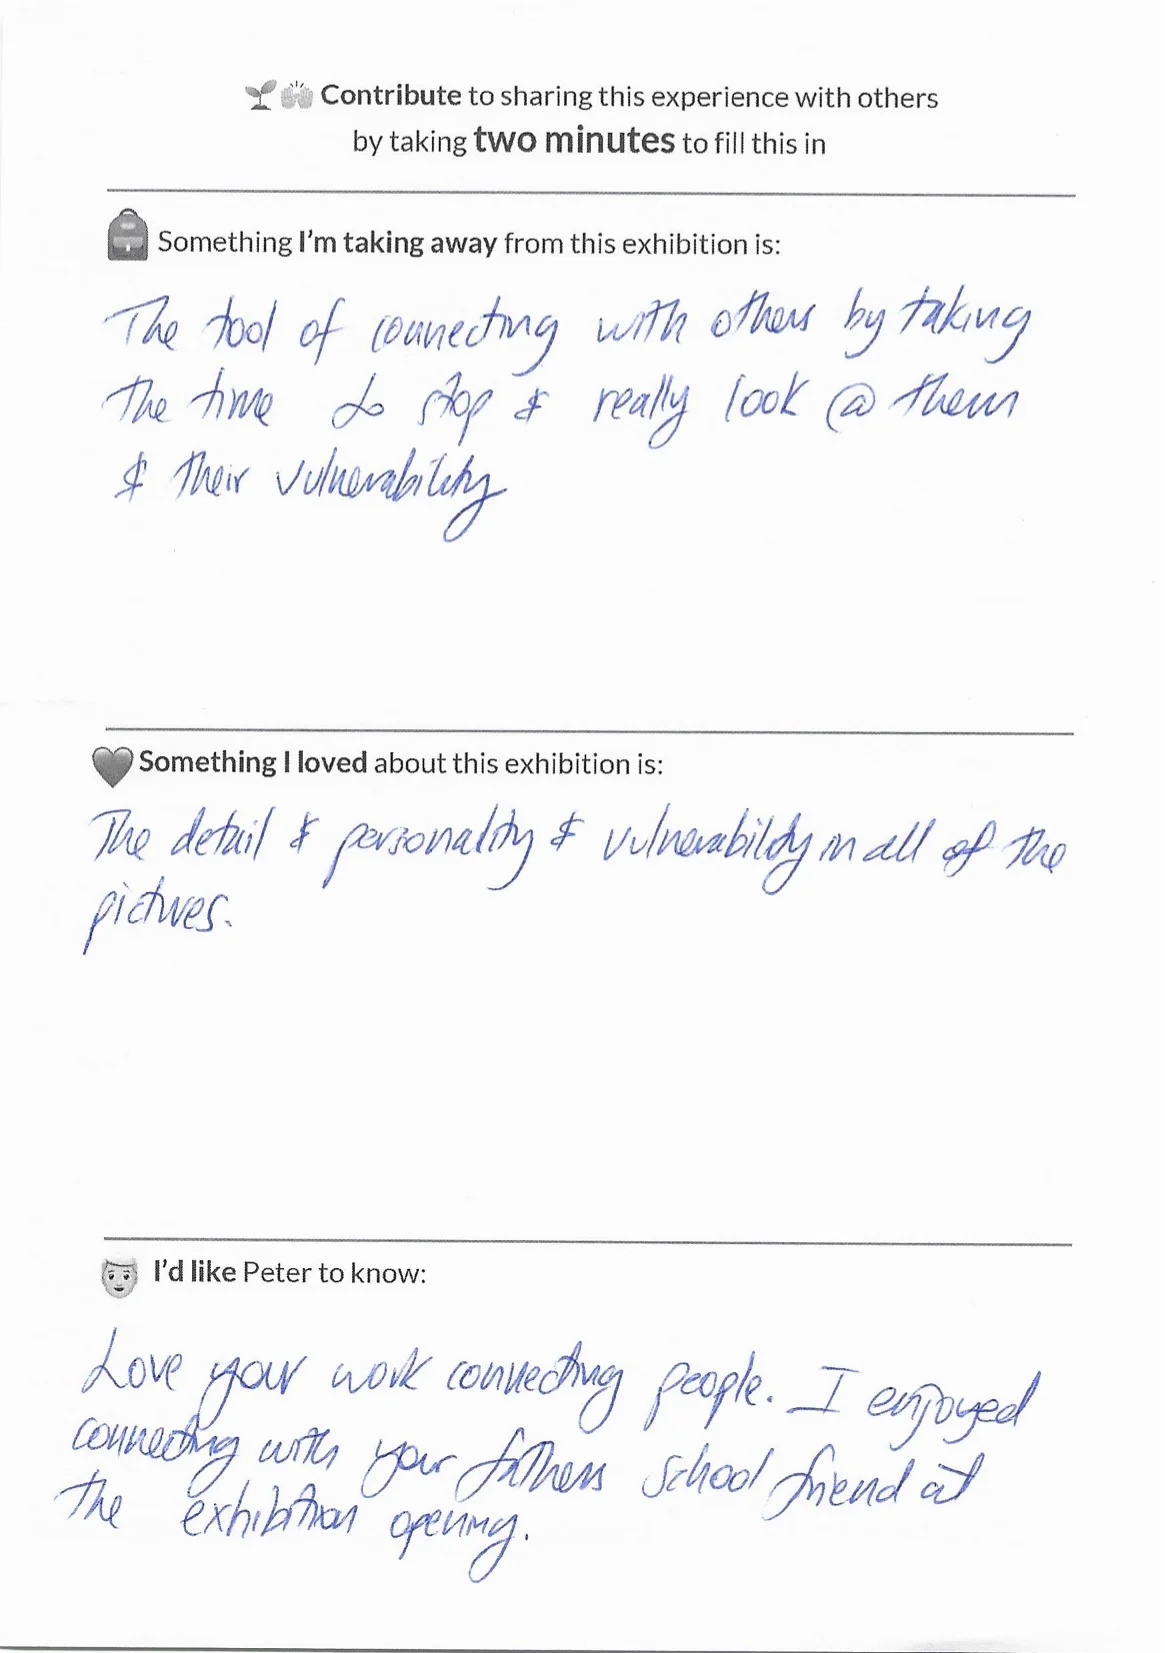 Contribute to sharing this experience with others
by taking two minutes to fill this in
Something I'm taking away from this exhibition is:
The tool of connecting with others by taking
the time to stop & really look @ them
& their vulnerability
Something I loved about this exhibition is:
The detail & personality & vulnerability in all of the
pictures.
I'd like Peter to know:
Love your work connecting people. I enjoyed
connecting with your fathers school friend at
the exhibition opening.